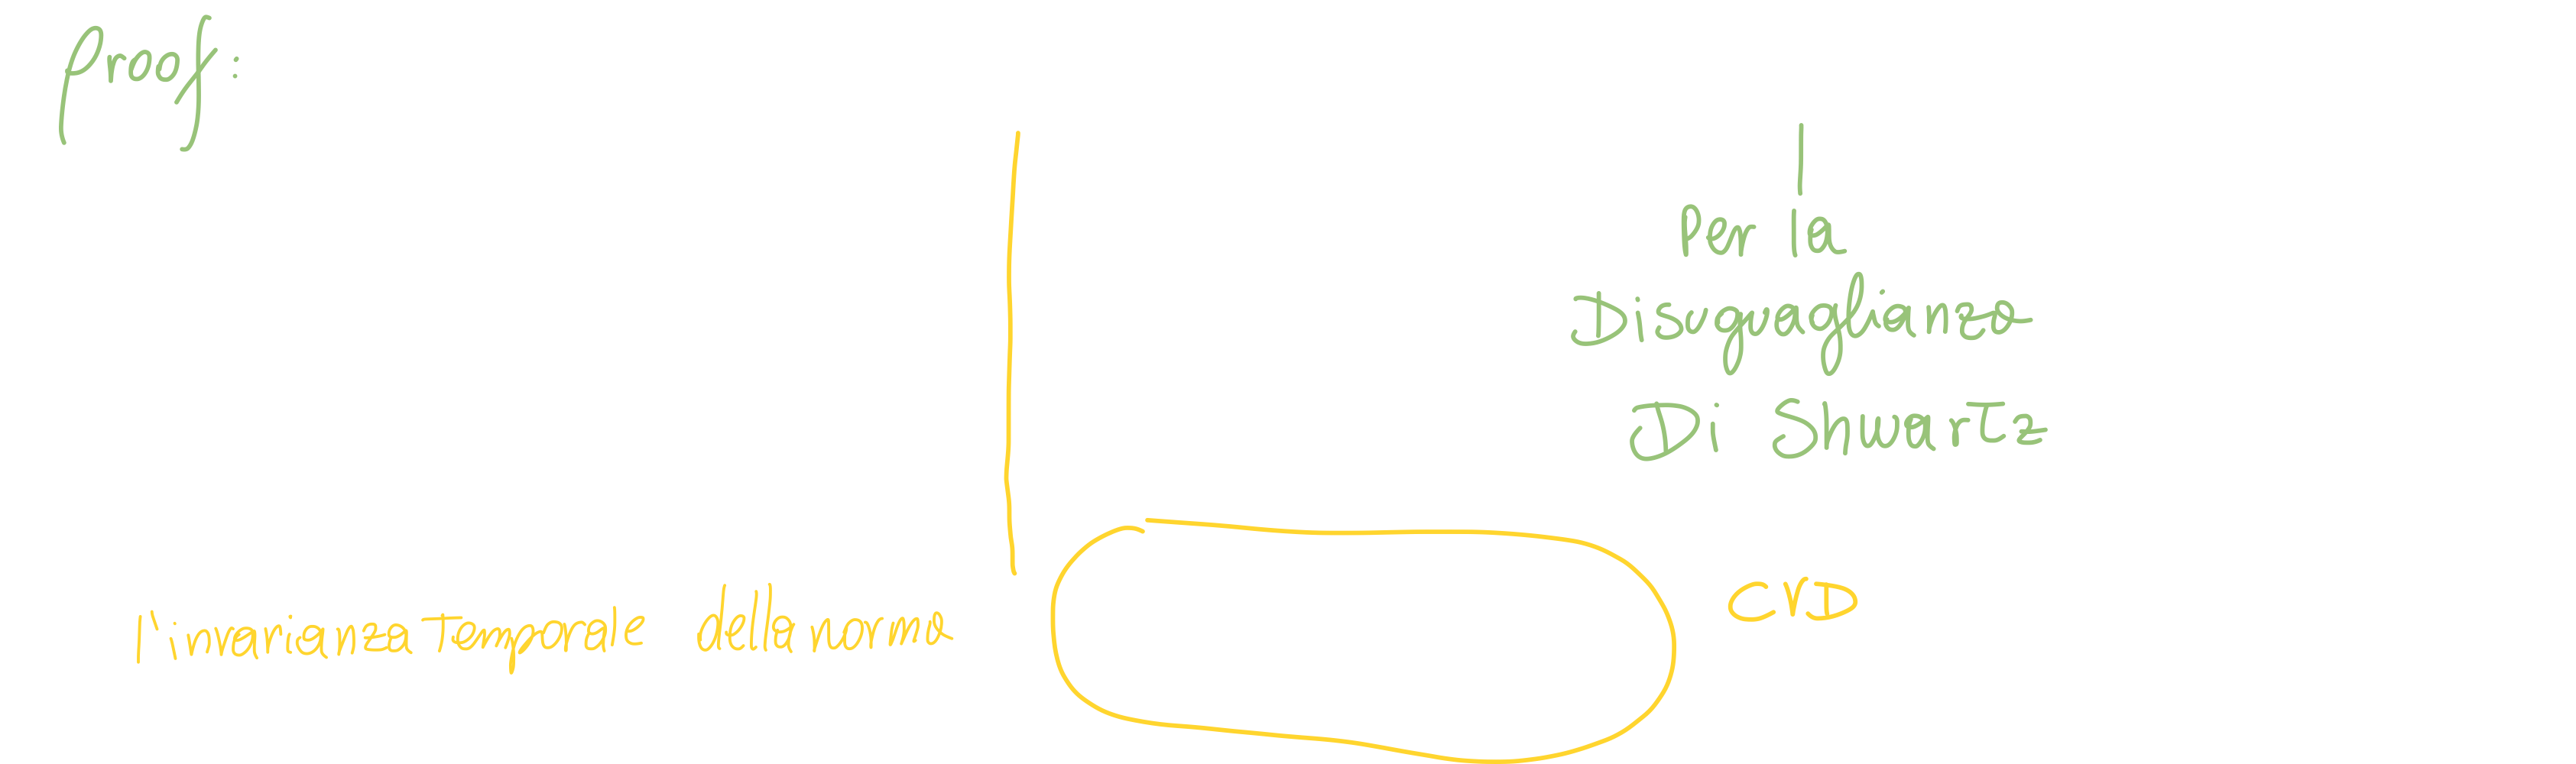 Proof:
Per la
Disuguaglianza
Di Shwartz
l'invarianza temporale della norma
CVD